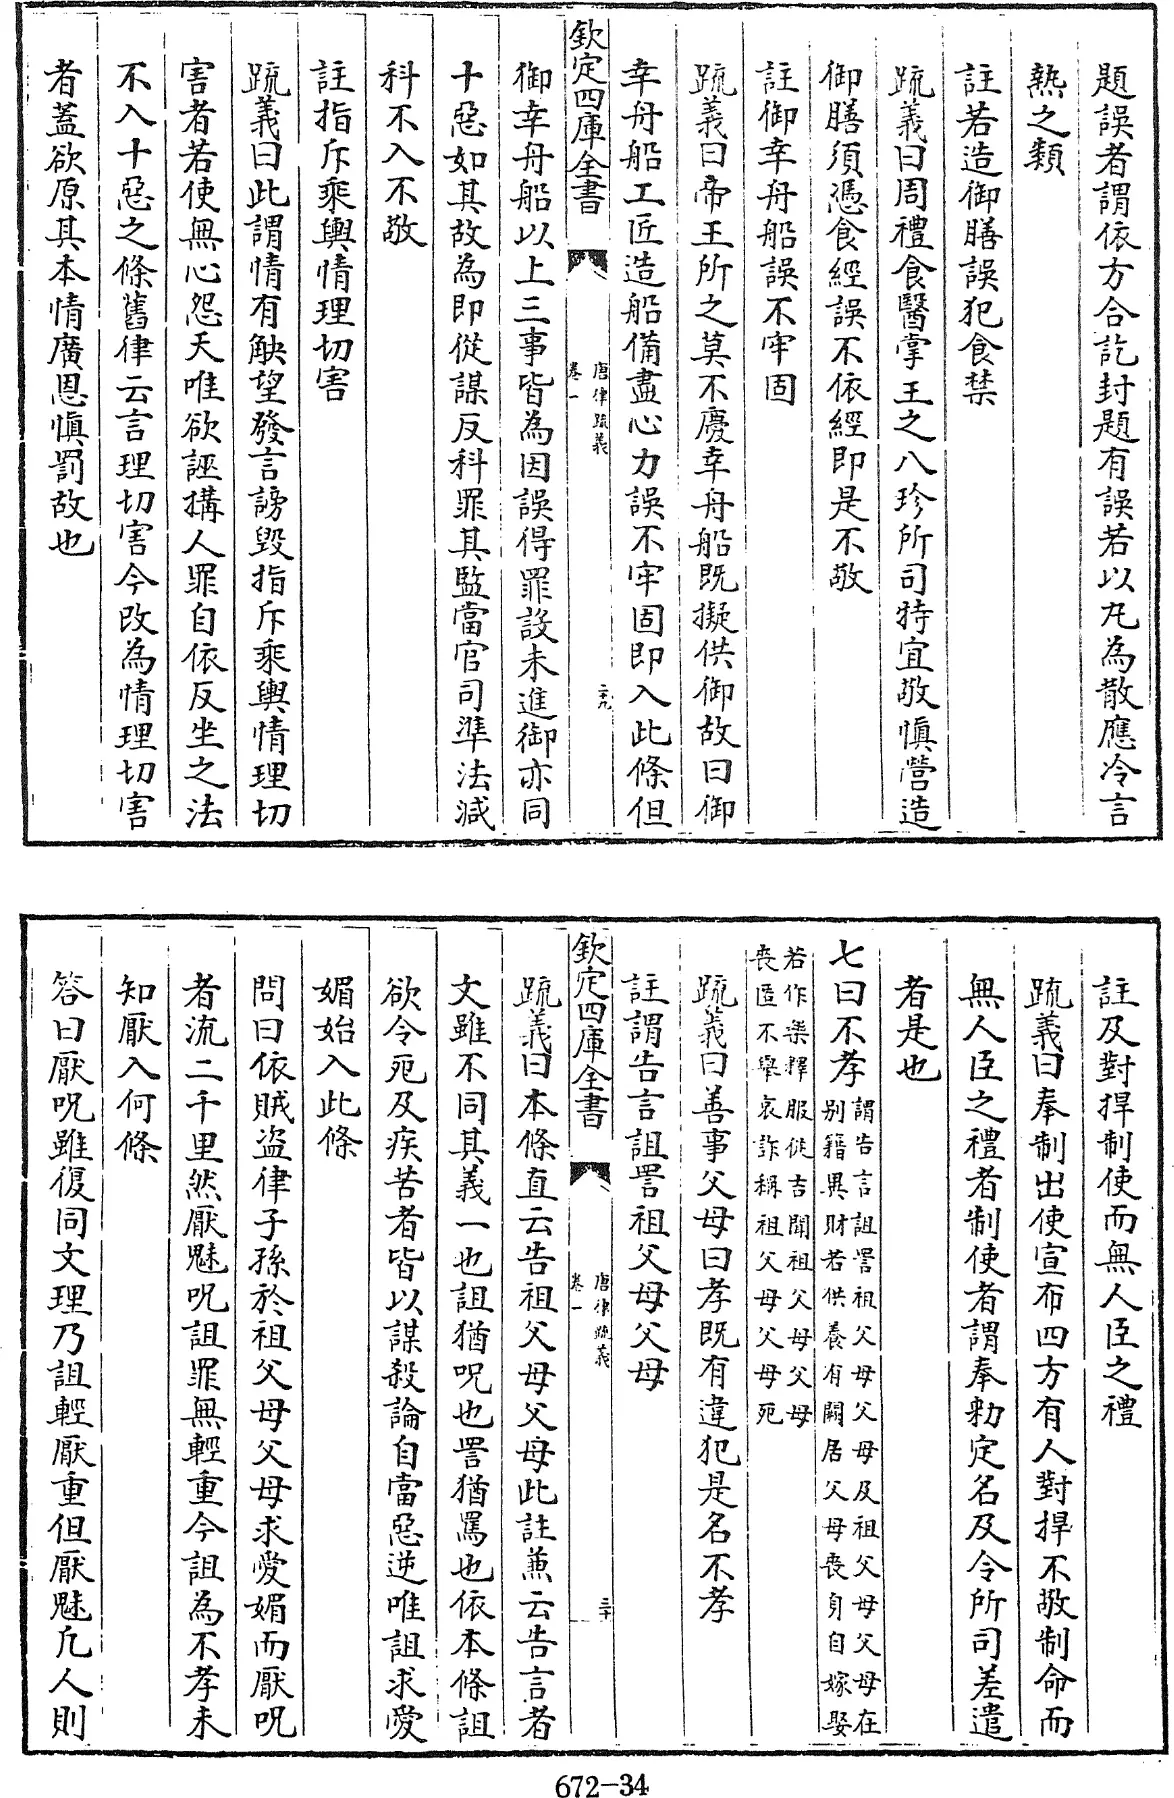 題誤者謂依方合訖封題有誤若以丸為散應冷言
熱之類
註若造御膳誤犯食禁
疏義曰周禮食醫掌王之八珍所司特宜敬慎營造
御膳須憑食經誤不依經即是不敬
註御幸舟船誤不牢固
疏義曰帝王所之莫不慶幸舟船既擬供御故曰御
幸舟船工匠造船備盡心力誤不牢固即入此條但
欽定四庫全書
唐律疏義
卷一
二九
御幸舟船以上三事皆為因誤得罪設未進御亦同
十惡如其故為即從謀反科罪其監當官司準法減
科不入不敬
註指斥乘輿情理切害
疏義曰此謂情有觖望發言謗毀指斥乘輿情理切
害者若使無心怨天唯欲誣搆人罪自依反坐之法
不入十惡之條舊律云言理切害今改為情理切害
者蓋欲原其本情廣恩慎罰故也
註及對捍制使而無人臣之禮
疏義曰奉制出使宣布四方有人對捍不敬制命而
無人臣之禮者制使者謂奉勑定名及令所司差遣
者是也
七曰不孝謂告言詛詈祖父母父母及祖父母父母在
別籍異財若供養有闕居父母喪身自嫁娶
若作樂釋服從吉聞祖父母父母
喪匿不舉哀詐稱祖父母父母死
疏義曰善事父母曰孝既有違犯是名不孝
註謂告言詛詈祖父母父母
欽定四庫全書
唐律疏義
卷一
三十
疏義曰本條直云告祖父母父母此註兼云告言者
文雖不同其義一也詛猶呪也詈猶罵也依本條詛
欲令死及疾苦者皆以謀殺論自當惡逆唯詛求愛
媚始入此條
問曰依賊盜律子孫於祖父母父母求愛媚而厭呪
者流二千里然厭魅呪詛罪無輕重今詛為不孝未
知厭入何條
答曰厭呪雖復同文理乃詛輕厭重但厭魅凡人則
672-34